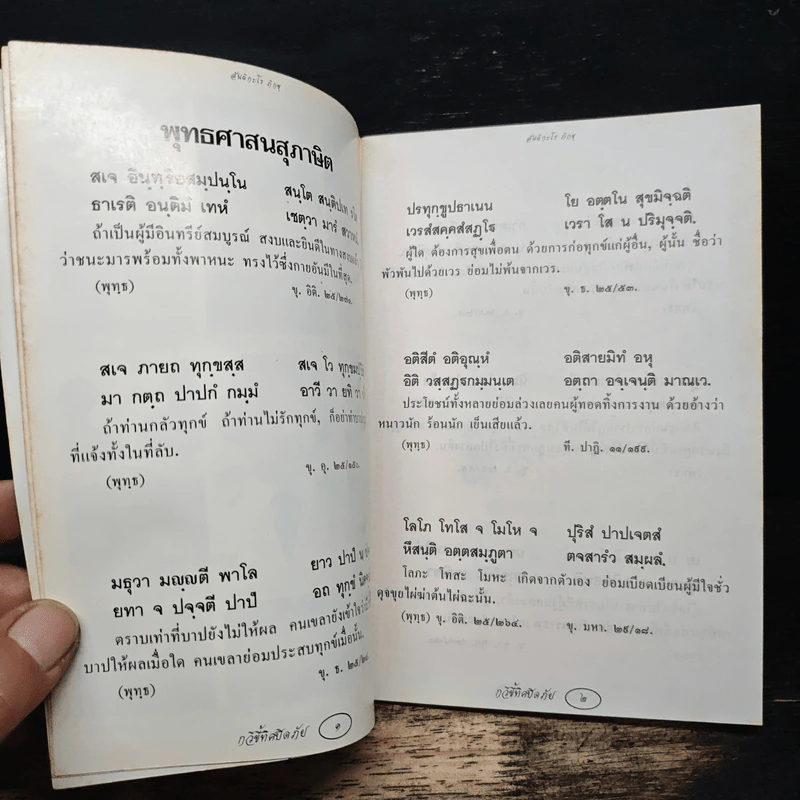 สันติกะโร ภิกขุ
พุทธศาสนสุภาษิต
สเจ อินฺทฺริยสมฺปนฺโน สนฺโต สนฺติปเท
ธาเรติ อนฺติมํ เทหํ เชตฺวา มารํ
ถ้าเป็นผู้มีอินทรีย์สมบูรณ์ สงบและยินดีในทาง
ว่าชนะมารพร้อมทั้งพาหนะ ทรงไว้ซึ่งกายอันมีในที่สุด.
(พุทฺธ) ขุ. อิติ. ๒๕/๒๗๑.
สเจ ภายถ ทุกฺขสฺส สเจ โว
มา กตฺถ ปาปกํ กมฺมํ อาวี วา ยทิ วา
ถ้าท่านกลัวทุกข์ ถ้าท่านไม่รักทุกข์, ก็อย่าทำบาป
ที่แจ้งทั้งในที่ลับ.
(พุทฺธ) ขุ. อุ. ๒๕/๑๕๐.
มธุวา มญฺญตี พาโล ยาว ปาปํ น
ยทา จ ปจฺจตี ปาปํ อถ ทุกฺขํ
ตราบเท่าที่บาปยังไม่ให้ผล คนเขลายังเข้าใจว่า
บาปให้ผลเมื่อใด คนเขลาย่อมประสบทุกข์เมื่อนั้น.
(พุทฺธ) ขุ. ธ. ๒๕/
กวีชี้ทิศปิดภัย ๑
สันติกะโร ภิกขุ
ปรทุกฺขูปธาเนน โย อตฺตโน สุขมิจฺฉติ
เวรสํสคฺคสํสฏฺโฐ เวรา โส น ปริมุจฺจติ.
ผู้ใด ต้องการสุขเพื่อตน ด้วยการก่อทุกข์แก่ผู้อื่น, ผู้นั้น ชื่อว่า
พัวพันไปด้วยเวร ย่อมไม่พ้นจากเวร.
(พุทฺธ) ขุ. ธ. ๒๕/๕๓.
อติสีตํ อติอุณฺหํ อติสายมิทํ อหุ
อิติ วสฺสฏฺฐกมฺมนฺเต อตฺถา อจฺเจนฺติ มาณเว.
ประโยชน์ทั้งหลายย่อมล่วงเลยคนผู้ทอดทิ้งการงาน ด้วยอ้างว่า
หนาวนัก ร้อนนัก เย็นเสียแล้ว.
(พุทฺธ) ที. ปาฏิ. ๑๑/๑๙๙.
โลโภ โทโส จ โมโห จ ปุริสํ ปาปเจตสํ
หึสนฺติ อตฺตสมฺภูตา ตจสารํว สมฺผลํ.
โลภะ โทสะ โมหะ เกิดจากตัวเอง ย่อมเบียดเบียนผู้มีใจชั่ว
ดุจขุยไผ่ฆ่าต้นไผ่ฉะนั้น.
(พุทฺธ) ขุ. อิติ. ๒๕/๒๖๔. ขุ. มหา. ๒๙/๑๘.
กวีชี้ทิศปิดภัย ๒